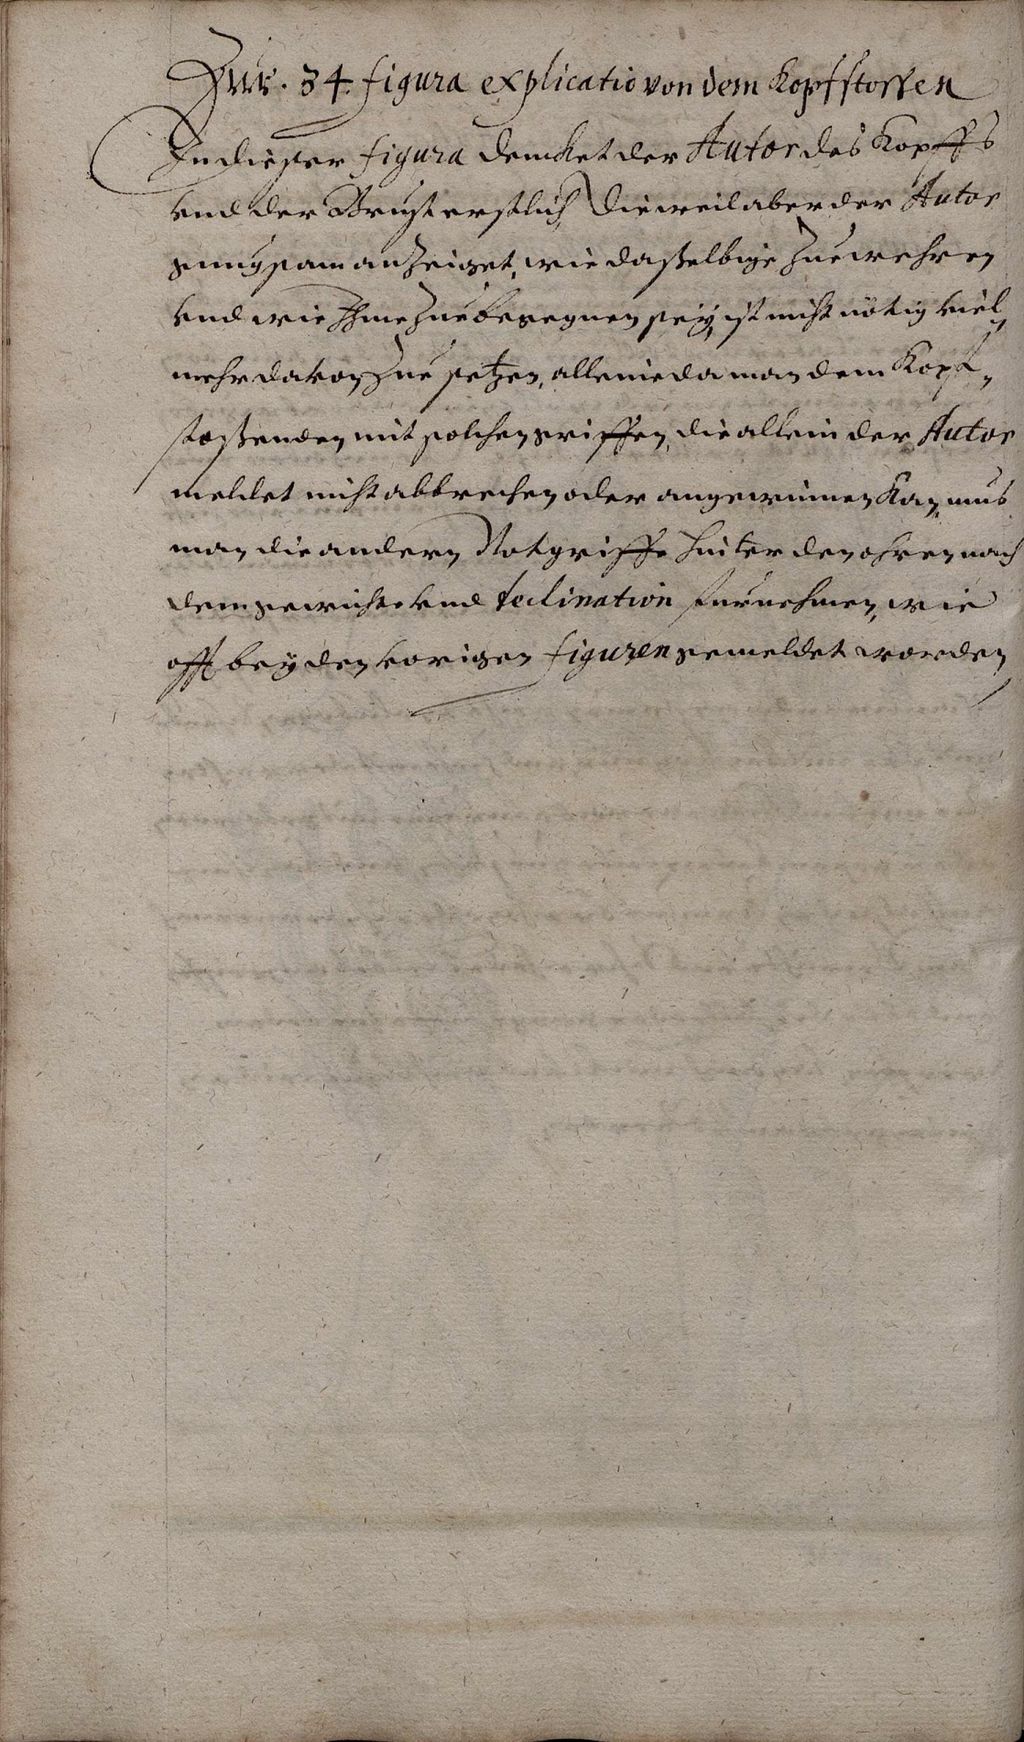 Zur. 34. figura explicatio von dem Kopfstossen
In dieser figura dencket der Autor des Kopffs
vnd der Brust erstlich, dieweil aber der Autor
gnugsam anzeiget, wie dasselbige zue wehren
vnd wie Ihme zue begegnen sey, ist nicht nötig viel
mehr davon zue setzen, alleine da man dem Kopf-
stossenden mit solchen griffen, die allein der Autor
meldet nicht abbrechen oder angewinnen kan, mus
man die andern Notgriffe hinter den ohren nach
dem gewichte vnd feclination furnehmen, wie
offt bey den vorigen figuren gemeldet worden